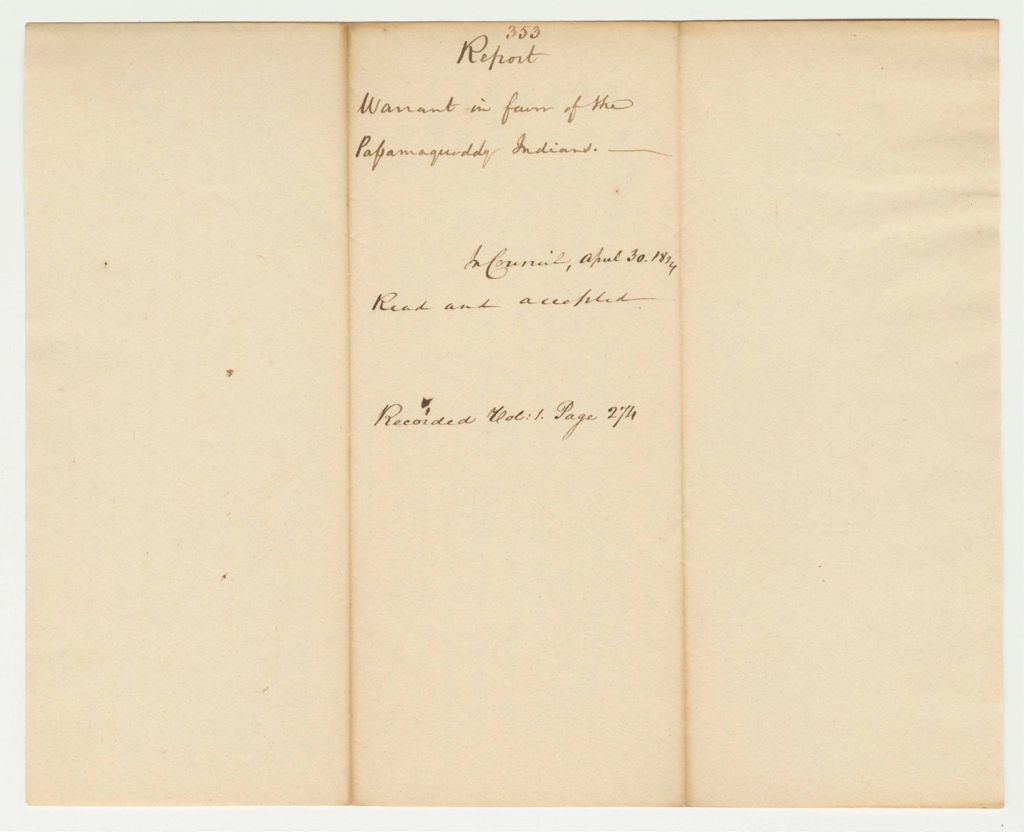 353
Report
Warrant in favor of the
Passamaquoddy Indians. —
In Council, April 30. 1824
Read and accepted
Recorded Vol: 1. Page 274